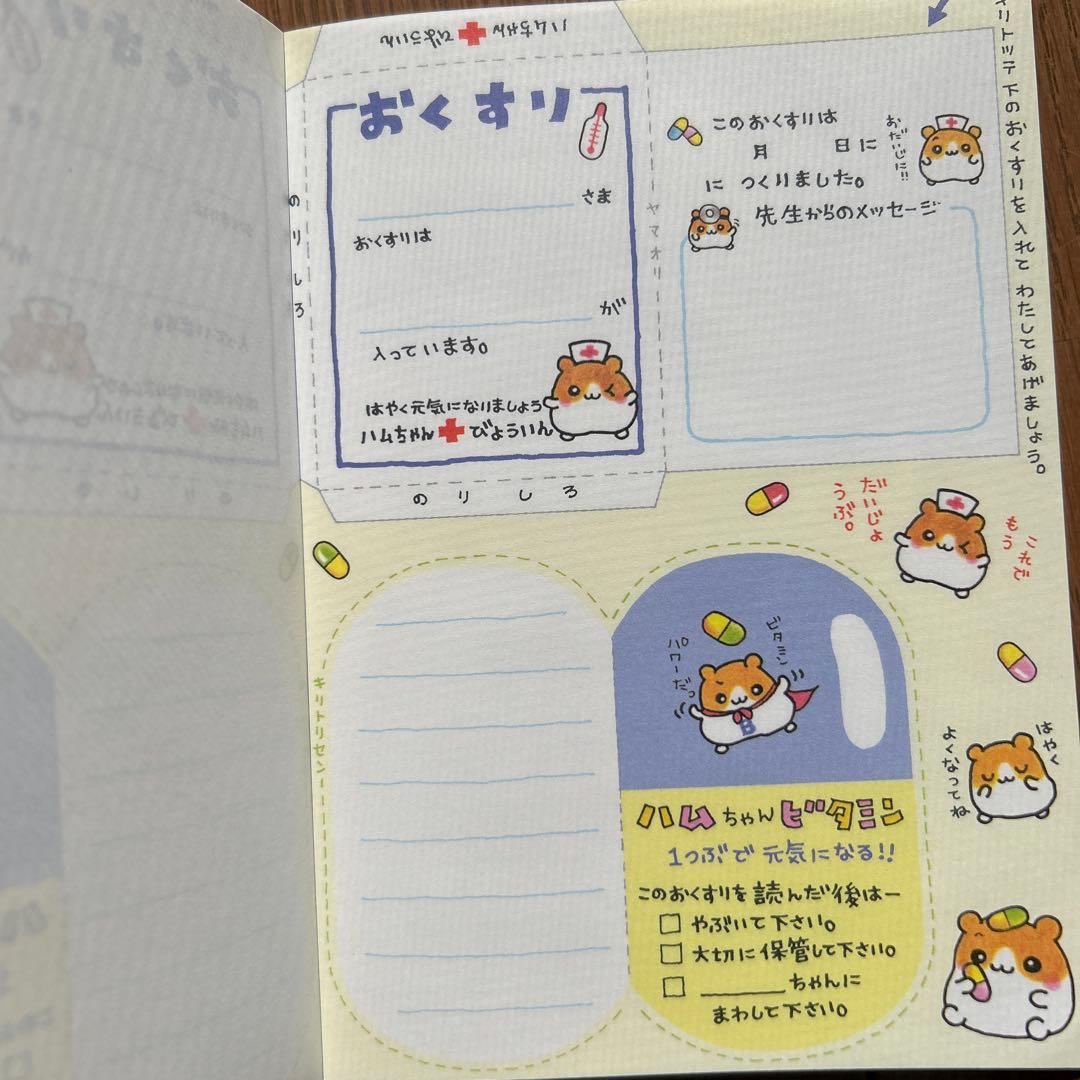 ハムちゃん✚びょういん
おくすり
さま
おくすりは
が
入っています。
はやく元気になりましょう
ハムちゃん✚びょういん
のりしろ
のりしろ
ヤマオリ
このおくすりは
月 日に
に つくりました。
おだいじに!!
先生からのメッセージ
キリトッテ下のおくすりを入れてわたしてあげましょう。
これで
もう
だいじょ
うぶ。
キリトリセン
ビタミン
パワーだっ
ハムちゃんビタミン
1つぶで元気になる!!
このおくすりを読んだ後はー
□ やぶいて下さい。
□ 大切に保管して下さい。
□ ちゃんに
まわして下さい。
はやく
よくなってね